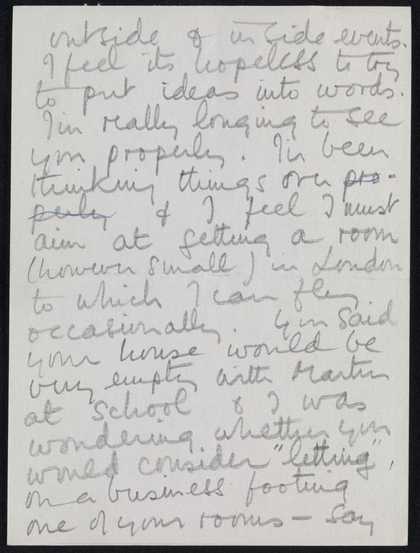 outside & inside events.
I feel its hopeless to try
to put ideas into words.
I'm really longing to see
you properly. I'm been
thinking things over pro-
perly & I feel I must
aim at getting a room
(however small) in London
to which I can fly
occasionally. You said
your house would be
very empty with Martin
at School & I was
wondering whether you
would consider "letting",
on a business footing
one of your rooms – say